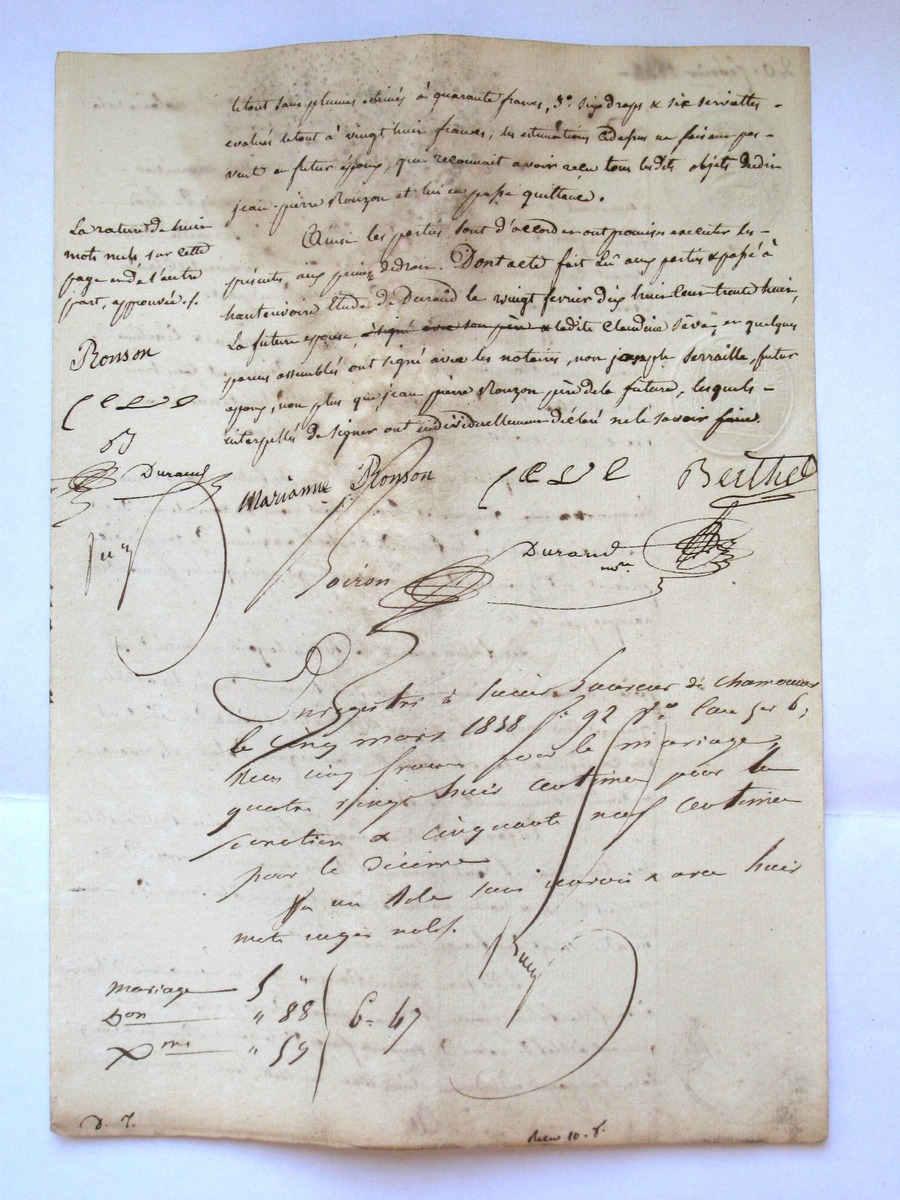 le tout sans plumes estimés à quarante francs, 3° six draps & six serviettes -
evalués le tout à vingt huit francs, les estimations cidessus ne faisant pas -
vente au futur époux, qui reconnait avoir reçu tous lesdits objets dudit
jean-pierre Ronzon et lui en passe quittance.
Ainsi les parties sont d'accord et ont promis executer les -
présentes, aux peines de droit. Dont acte fait Lu aux parties & passé à
hauterivoire Etude de Durand le vingt fevrier dix huit cent trente huit,
La future epouse, a signé avec son père & ladite Claudine Sève, et quelques
parens assemblés ont signé avec les notaires, non joseph Serraille, futur
époux, non plus que jean pierre Ronzon père de la future, lesquels -
interpellés de signer ont individuellement déclaré ne le savoir faire.
La rature de huit
mots nuls, sur cette
page et de l'autre
part, approuvée ./.
Ronson
Durand
Marianne Ronson
Berthet
Durand
not.re
Enregistré à Saint Laurent de Chamousset
le cinq mars 1838 f.° 92 v.° Case 5 et 6,
Reçu cinq francs pour le mariage,
quatre vingt huit centimes pour la
donation & cinquante neuf centimes
pour le décime
mots rayés nuls.
mariage 5 "
Don " 88
X.mes " 59
6 = 47
D. 7.